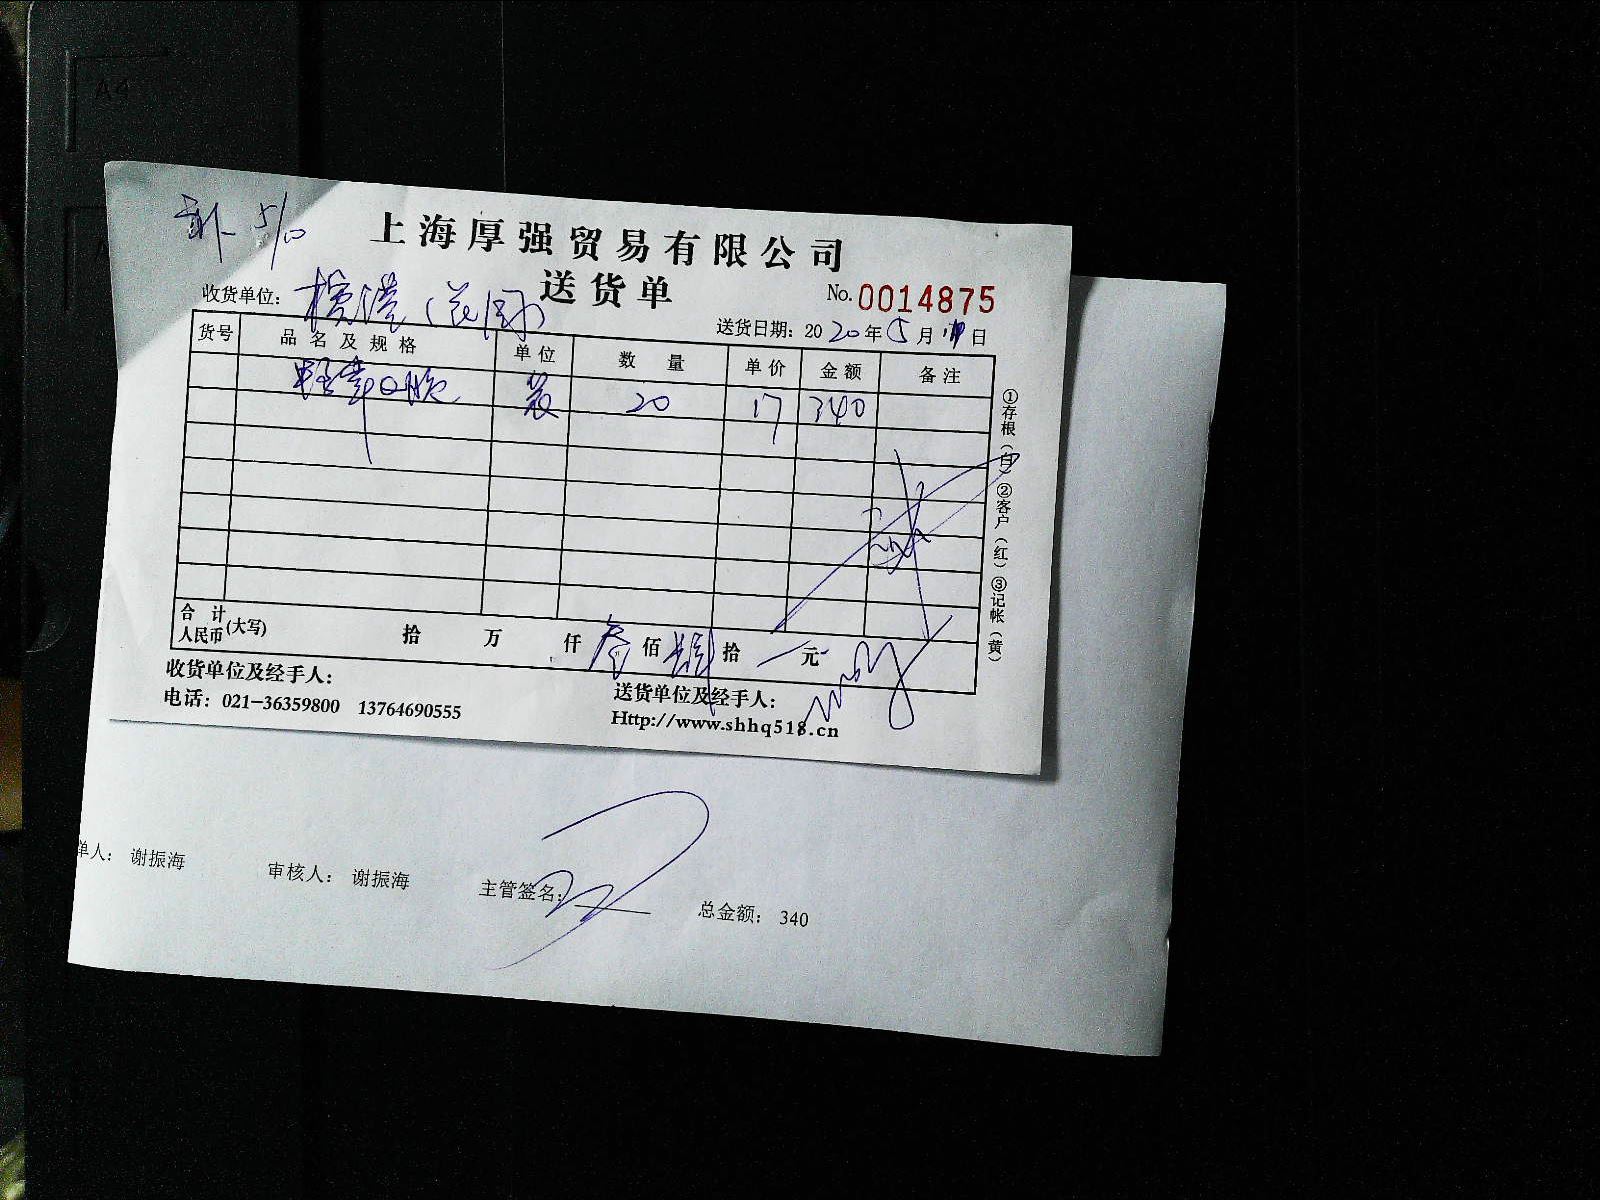 A4
补 5/10
上海厚强贸易有限公司
送货单
No. 0014875
收货单位： 横港（花园）
送货日期：2020年5月 日
货号 品名及规格 单位 数量 单价 金额 备注
20 17 340
①存根（白）②客户（红）③记帐（黄）
合计
人民币(大写) 拾 万 仟 叁 佰 肆 拾 元
收货单位及经手人：
送货单位及经手人：
电话：021-36359800 13764690555
Http://www.shhq518.cn
单人： 谢振海 审核人： 谢振海 主管签名： 总金额： 340